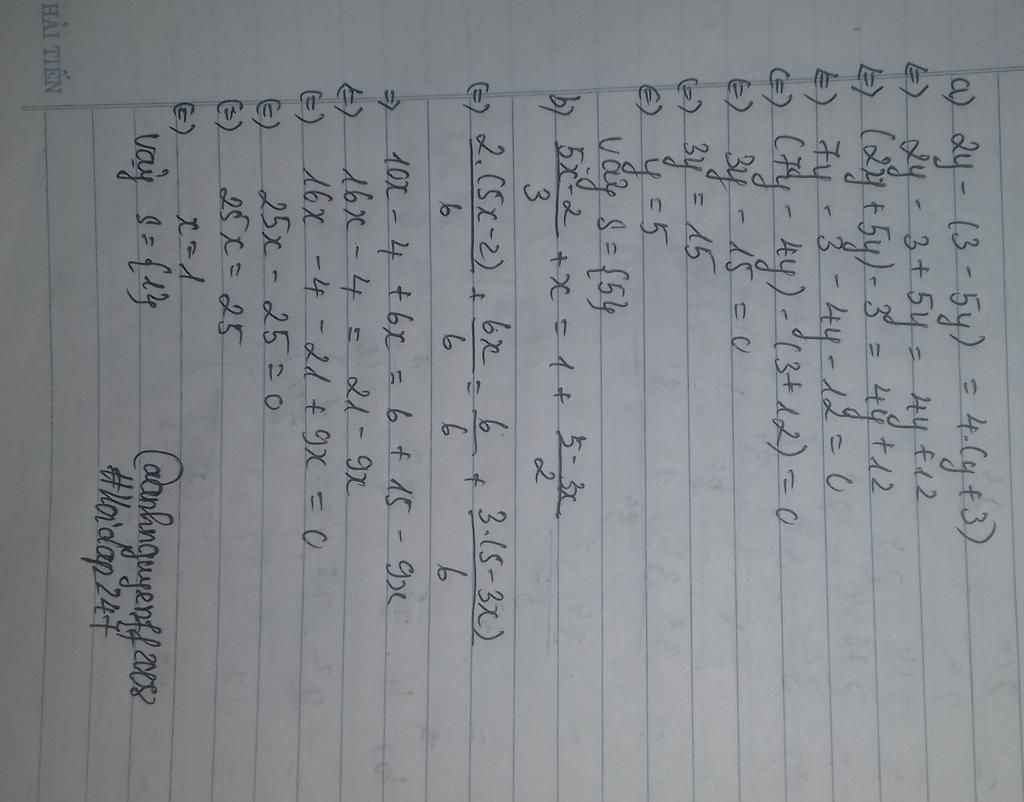 HẢI TIẾN
a) 2y - (3 - 5y) = 4.(y + 3)
(=) 2y - 3 + 5y = 4y + 12
(=) (2y + 5y) - 3 = 4y + 12
(=) 7y - 3 - 4y - 12 = 0
(=) (7y - 4y) - (3 + 12) = 0
(=) 3y - 15 = 0
(=) 3y = 15
(=) y = 5
Vậy S = {5}
b) \frac{5x - 2}{3} + x = 1 + \frac{5 - 3x}{2}
(=) \frac{2.(5x - 2)}{6} + \frac{6x}{6} = \frac{6}{6} + \frac{3.(5 - 3x)}{6}
=) 10x - 4 + 6x = 6 + 15 - 9x
(=) 16x - 4 = 21 - 9x
(=) 16x - 4 - 21 + 9x = 0
(=) 25x - 25 = 0
(=) 25x = 25
(=) x = 1
Vậy S = {1}
#Hoidap247